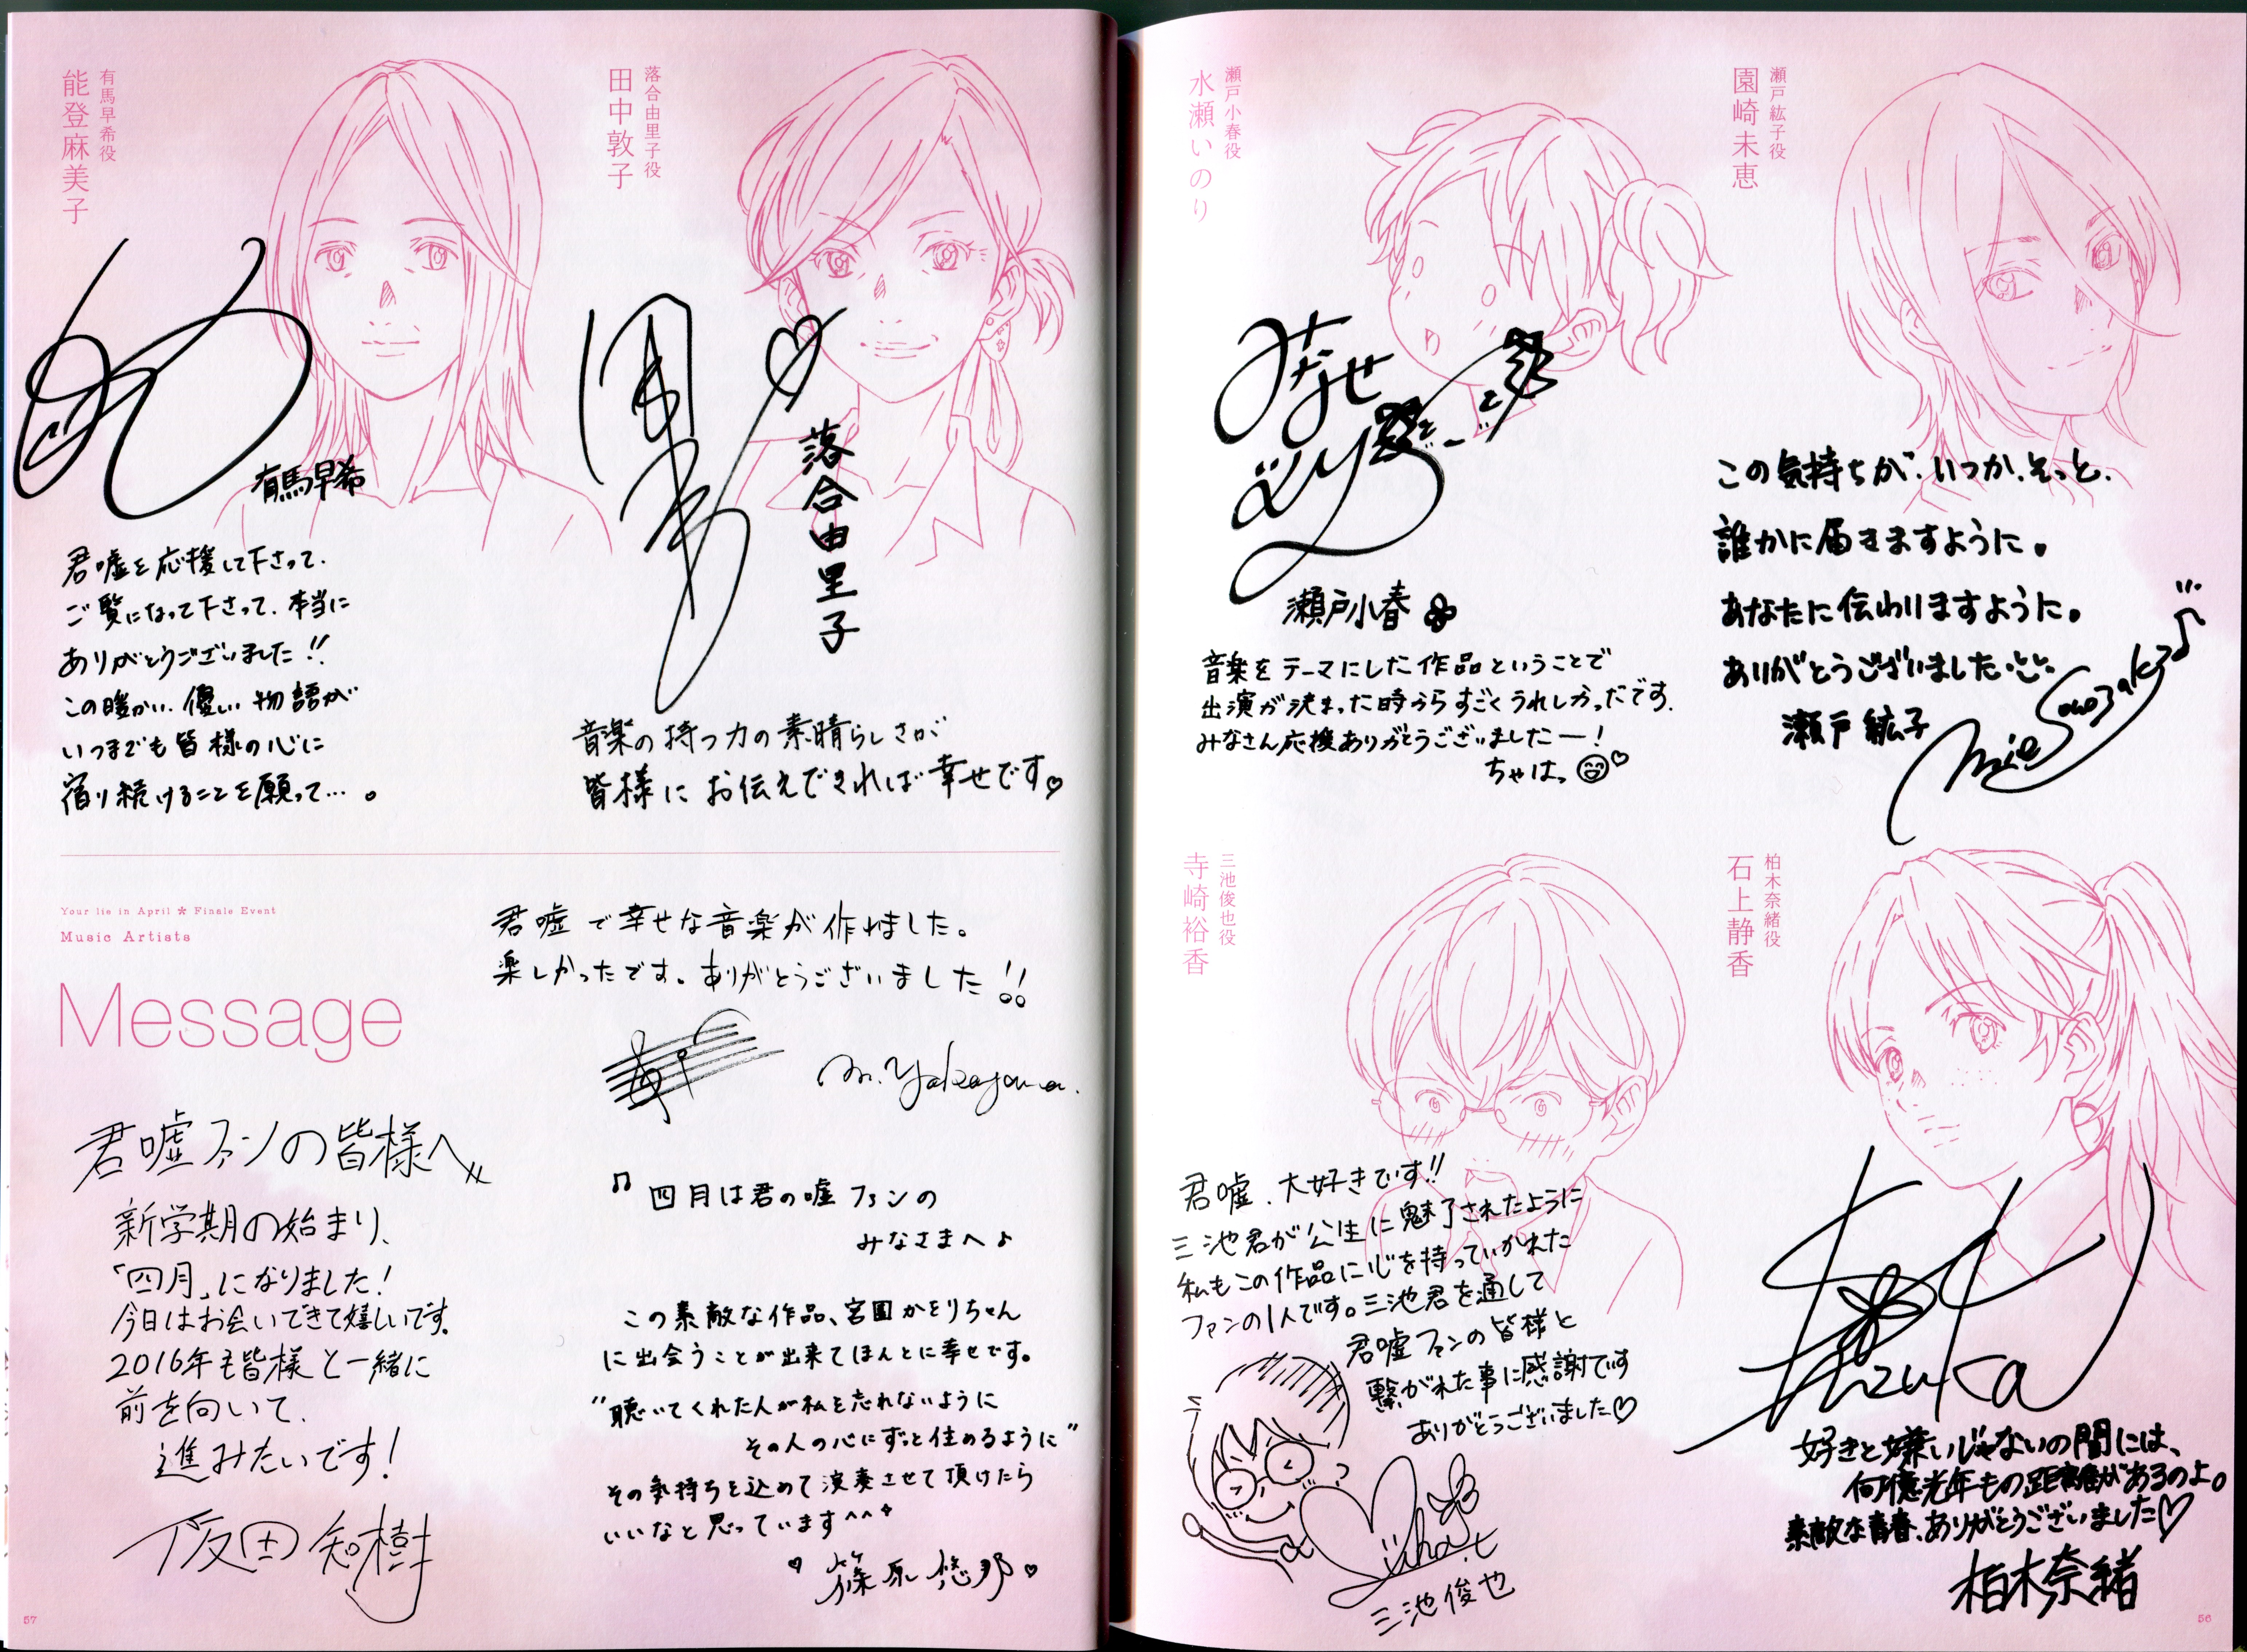 瀬戸紘子役
園崎未恵
この気持ちが、いつか、そっと、
誰かに届きますように。
あなたに伝わりますように。
ありがとうございました
瀬戸紘子
Mie Sonozaki
瀬戸小春役
水瀬いのり
みなせ
いのり
瀬戸小春
音楽をテーマにした作品ということで
出演が決まった時からすごくうれしかったです.
みなさん応援ありがとうございましたー!
ちゃはっ
柏木奈緒役
石上静香
Shizuka
好きと嫌いじゃないの間には、
何億光年もの距離があるのよ。
素敵な青春、ありがとうございました♡
柏木奈緒
三池俊也役
寺崎裕香
君嘘、大好きです!!
三池君が公生に魅了されたように
私もこの作品に心を持っていかれた
ファンの1人です。三池君を通して
君嘘ファンの皆様と
繋がれた事に感謝です
ありがとうございました♡
三池俊也
落合由里子役
田中敦子
落合由里子
音楽の持つ力の素晴らしさが
皆様にお伝えできれば幸せです♡
有馬早希役
能登麻美子
有馬早希
君嘘を応援して下さって、
ご覧になって下さって、本当に
ありがとうございました!!
この暖かい、優しい物語が
いつまでも皆様の心に
宿り続けることを願って…。
Your lie in April * Finale Event
Music Artists
Message
君嘘で幸せな音楽が作れました。
楽しかったです。ありがとうございました!!
m.yokoyama.
君嘘ファンの皆様へ
新学期の始まり、
「四月」になりました!
今日はお会いできて嬉しいです.
2016年も皆様と一緒に
前を向いて、
進みたいです!
阪田知樹
♫ 四月は君の嘘ファンの
みなさまへ♪
この素敵な作品、宮園かをりちゃん
に出会うことが出来てほんとに幸せです。
"聴いてくれた人が私を忘れないように
その人の心にずっと住めるように"
その気持ちを込めて演奏させて頂けたら
いいなと思っています^^
♥ 篠原悠那 ♡
57
56